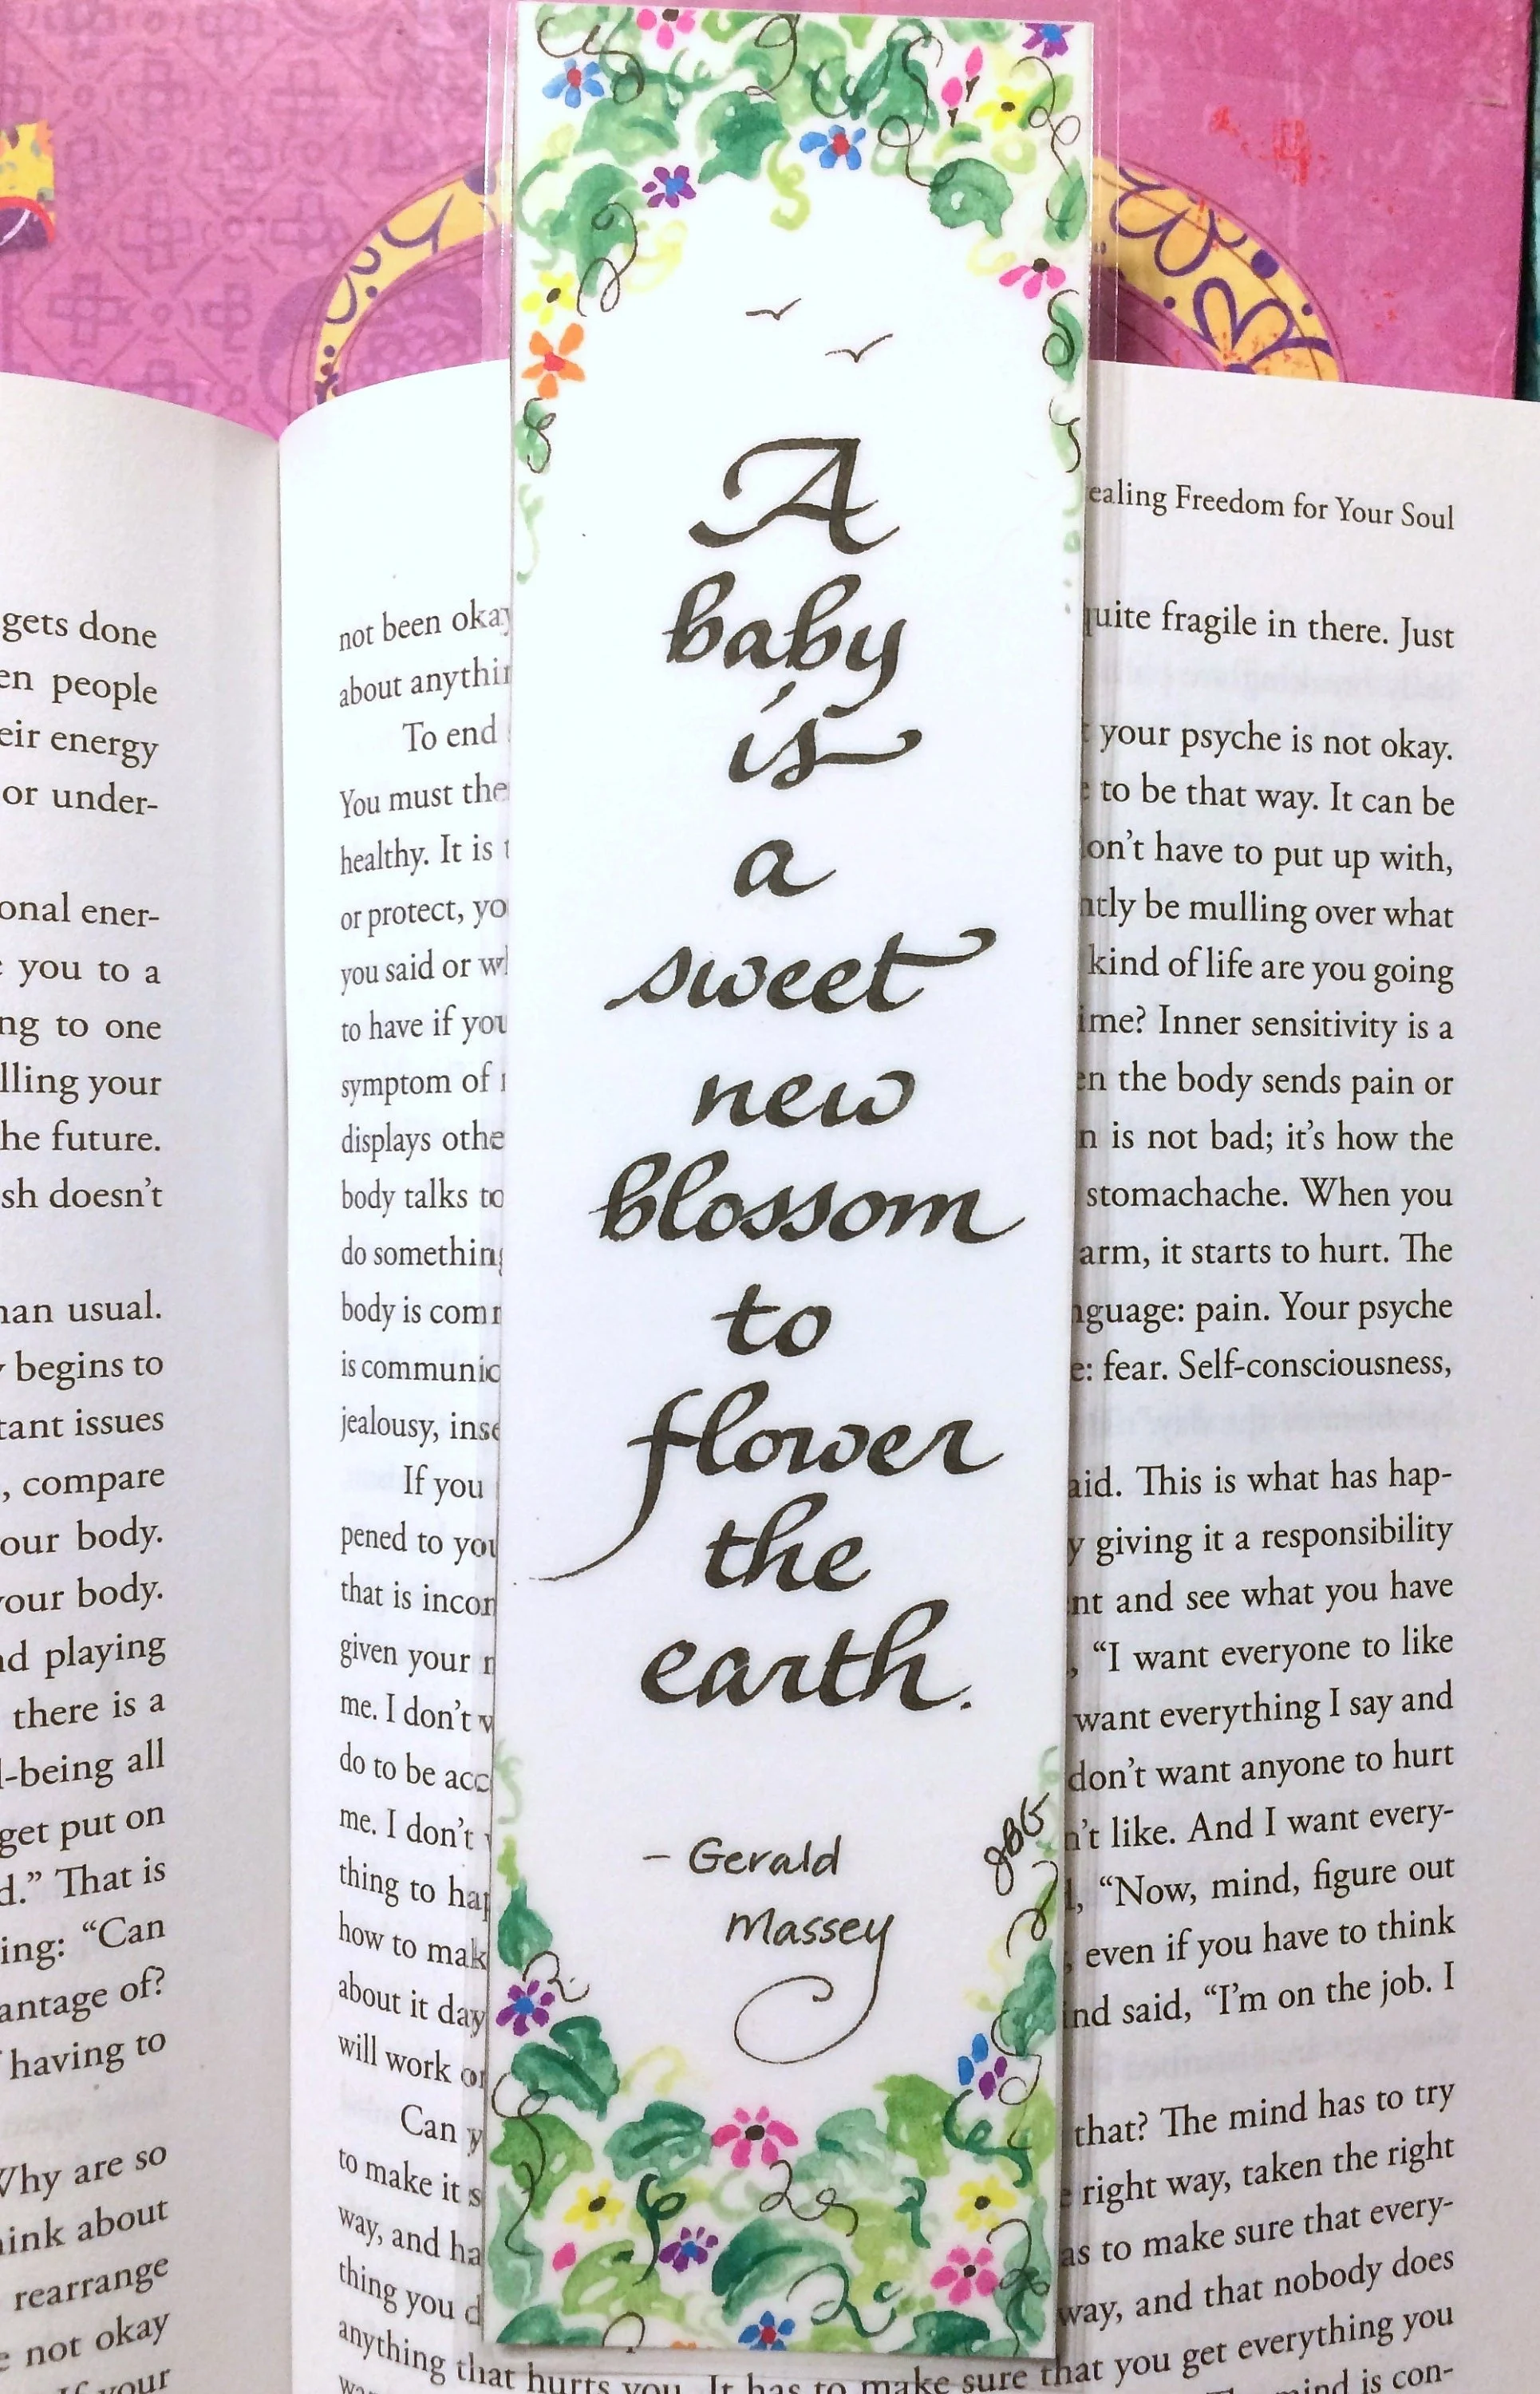 A
baby
is
a
sweet
new
blossom
to
flower
the
earth.
- Gerald
Massey
JBG
gets done
people
energy
or under-
ener-
you to a
to one
your
future.
doesn't
usual.
begins to
issues
, compare
body.
body.
playing
there is a
all
get put on
That is
"Can
of?
having to
are so
about
rearrange
not okay
Freedom for Your Soul
not been okay
about
To end
You must
healthy. It is
or protect,
you said or
to have if you
symptom of
displays
body talks to
do something
body is
is
jealousy,
If you
pened to you
that is
given your
me. I don't
do to be
me. I don't
thing to
how to
about it day
will work
Can
to make it
way, and
thing you
anything that hurts you. It has to make sure that you get everything you
fragile in there. Just
your psyche is not okay.
to be that way. It can be
have to put up with,
be mulling over what
kind of life are you going
Inner sensitivity is a
the body sends pain or
is not bad; it's how the
stomachache. When you
arm, it starts to hurt. The
pain. Your psyche
fear. Self-consciousness,
This is what has hap-
giving it a responsibility
and see what you have
"I want everyone to like
want everything I say and
don't want anyone to hurt
like. And I want every-
"Now, mind, figure out
even if you have to think
said, "I'm on the job. I
that? The mind has to try
right way, taken the right
to make sure that every-
way, and that nobody does
is con-